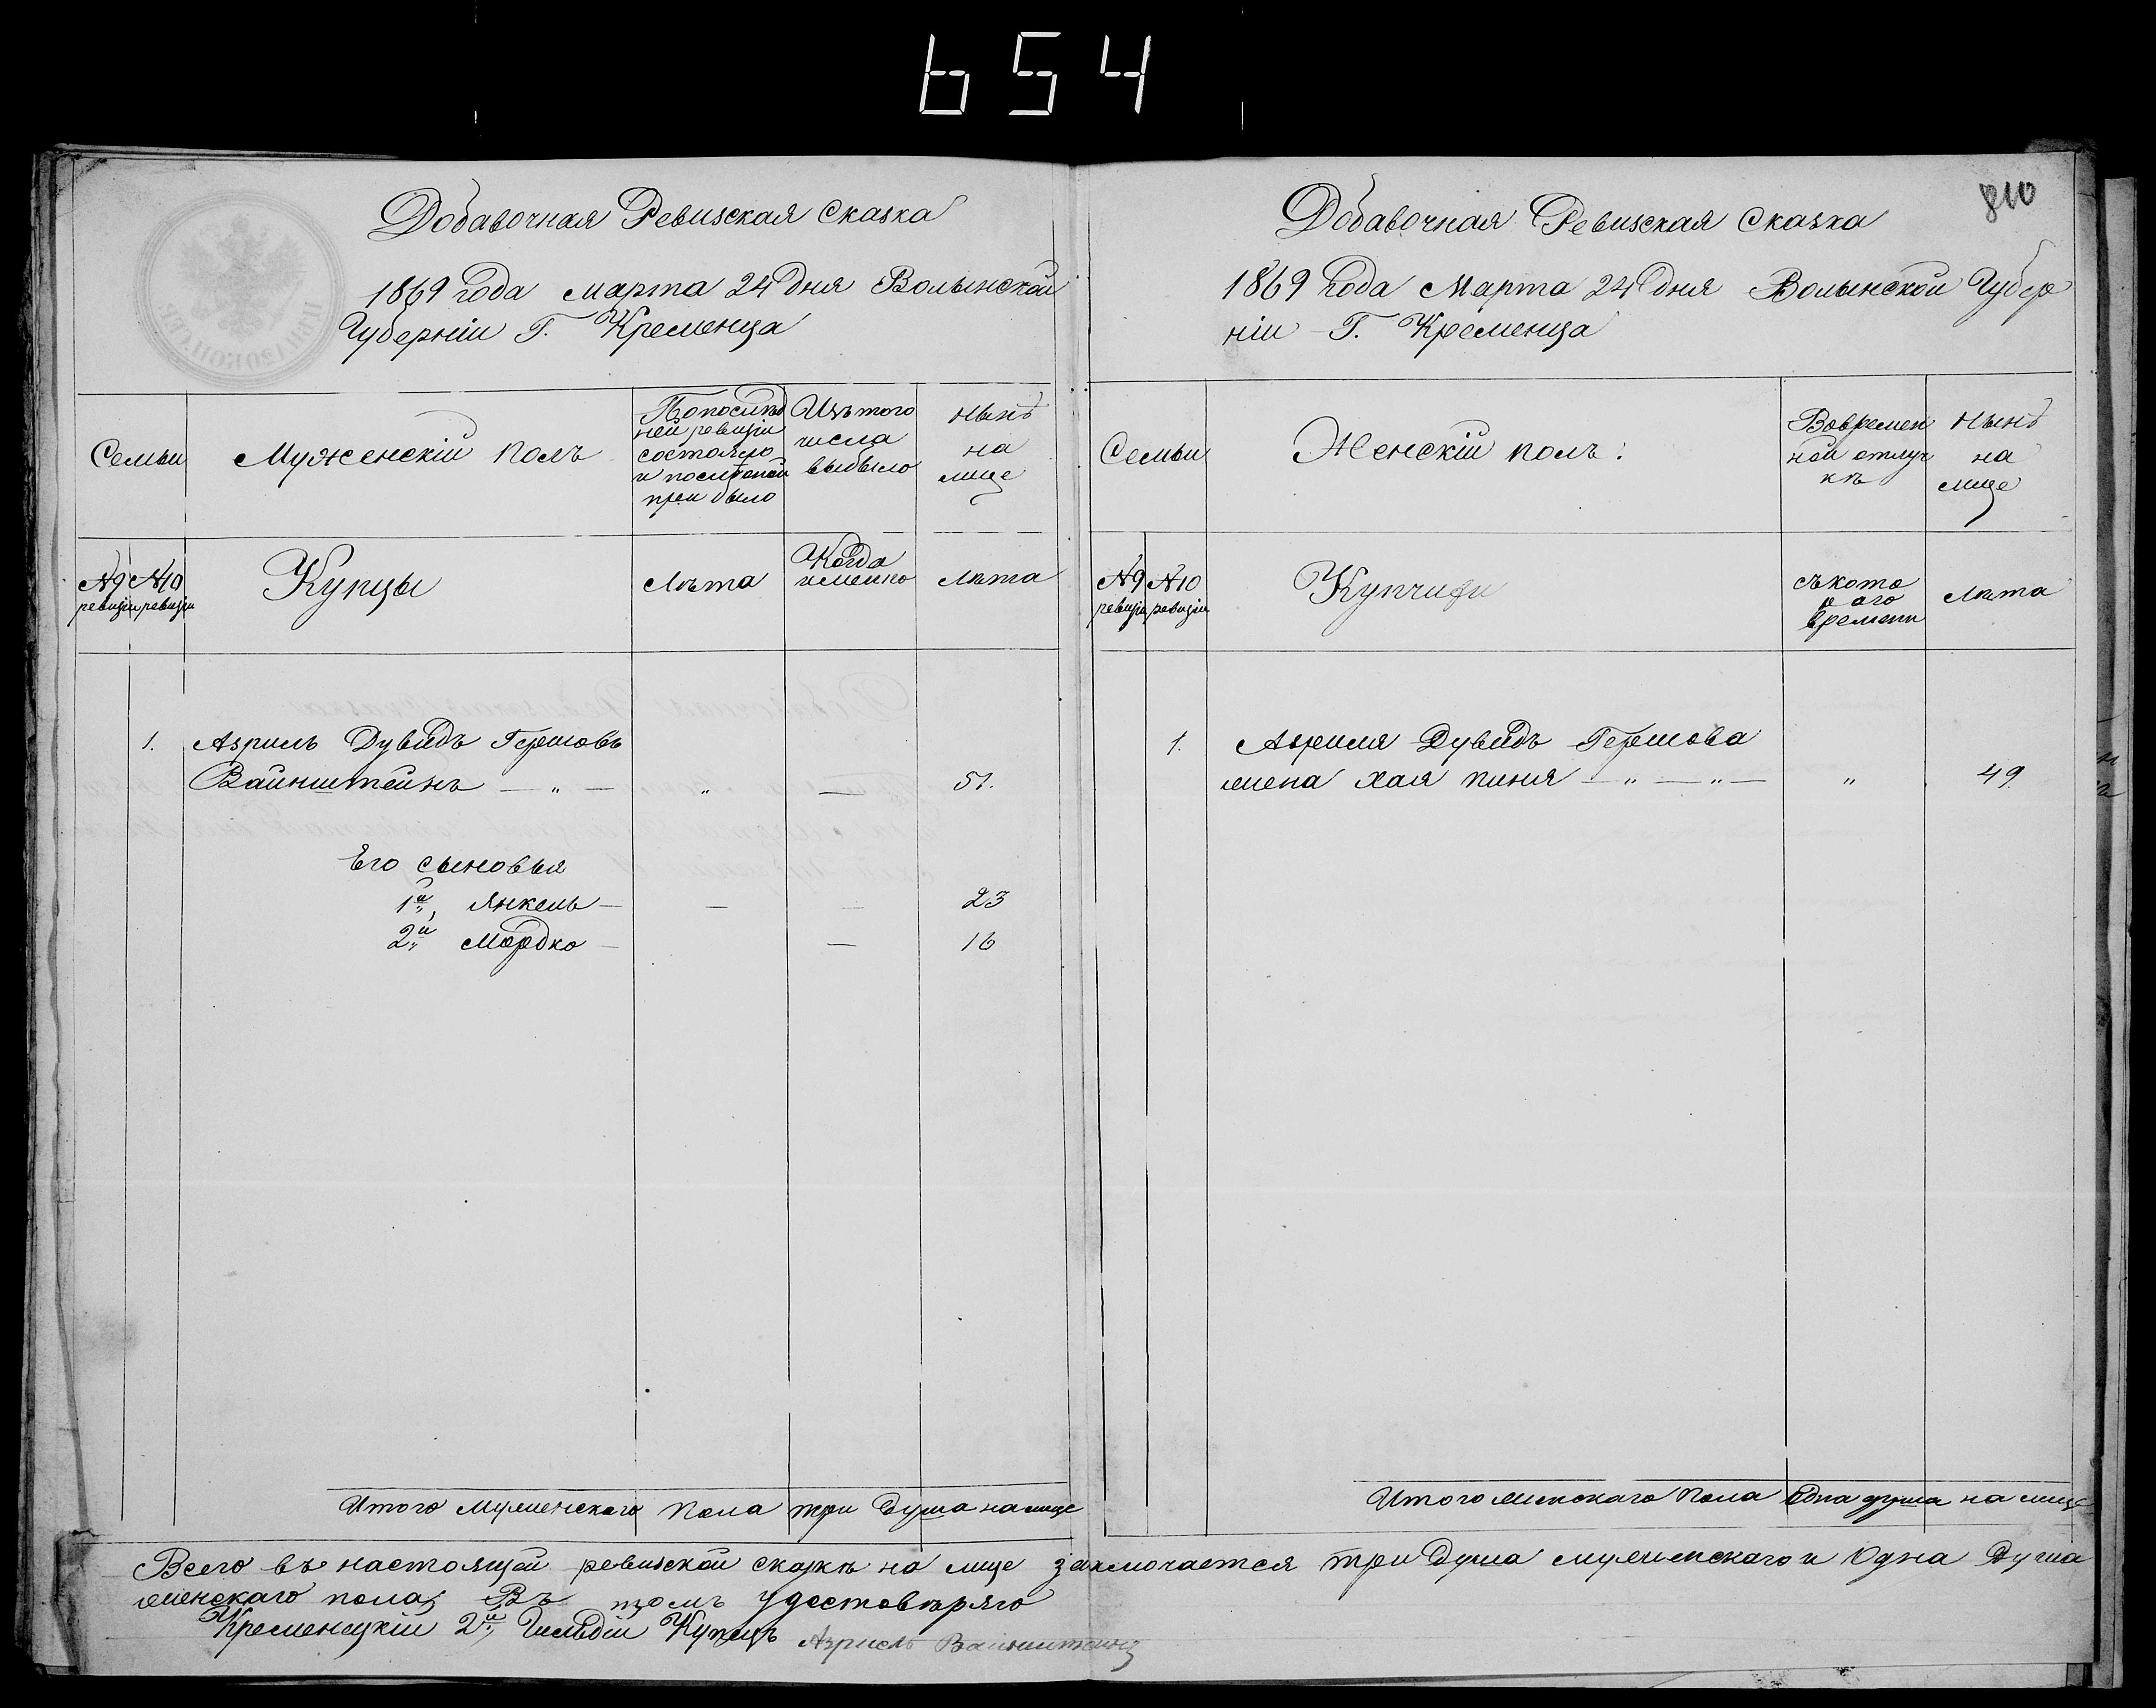 654
Добавочная Ревизская Сказка
1869 года марта 24 дня Волынской
Губерніи Г. Кременца
Семьи
Муженскій полъ
По послѣд
ней ревизіи
состояло
и послѣ оной
при было
Изъ того
числа
выбыло
Нынѣ
на
лице
№ 9 ревизіи
№ 10 ревизіи
Купцы
Лѣта
Когда
именно
Лѣта
1. Азриль Дувидъ Гершовъ
Вайнштейнъ — „ — „ — 51.
Его сыновья
1й, Янкель — — — 23
2й, Мордко — — 16
Итого Мужженскаго пола три душа на лице
810
Добавочная Ревизская Сказка
1869 Года Марта 24 дня Волынской Губер
ніи Г. Кременца
Семьи
Женскій полъ:
Вовремен
ной отлуч
кѣ
Нынѣ
на
лице
№ 9 ревизіи
№ 10 ревизіи
Купчихи
съ кото
р аго
времени
Лѣта
1. Азриля Дувидъ Гершова
жена Хая Пиня — „ — „ — „ 49
Итого женскаго пола одна душа на лице
Всего въ настоящой ревизской сказкѣ на лице заключается три душа мужженскаго и Одна Душа
женскаго пола; Въ чомъ удостовѣряю
Кременецкій 2й Гильдіи Купецъ Азриль Вайнштейнъ